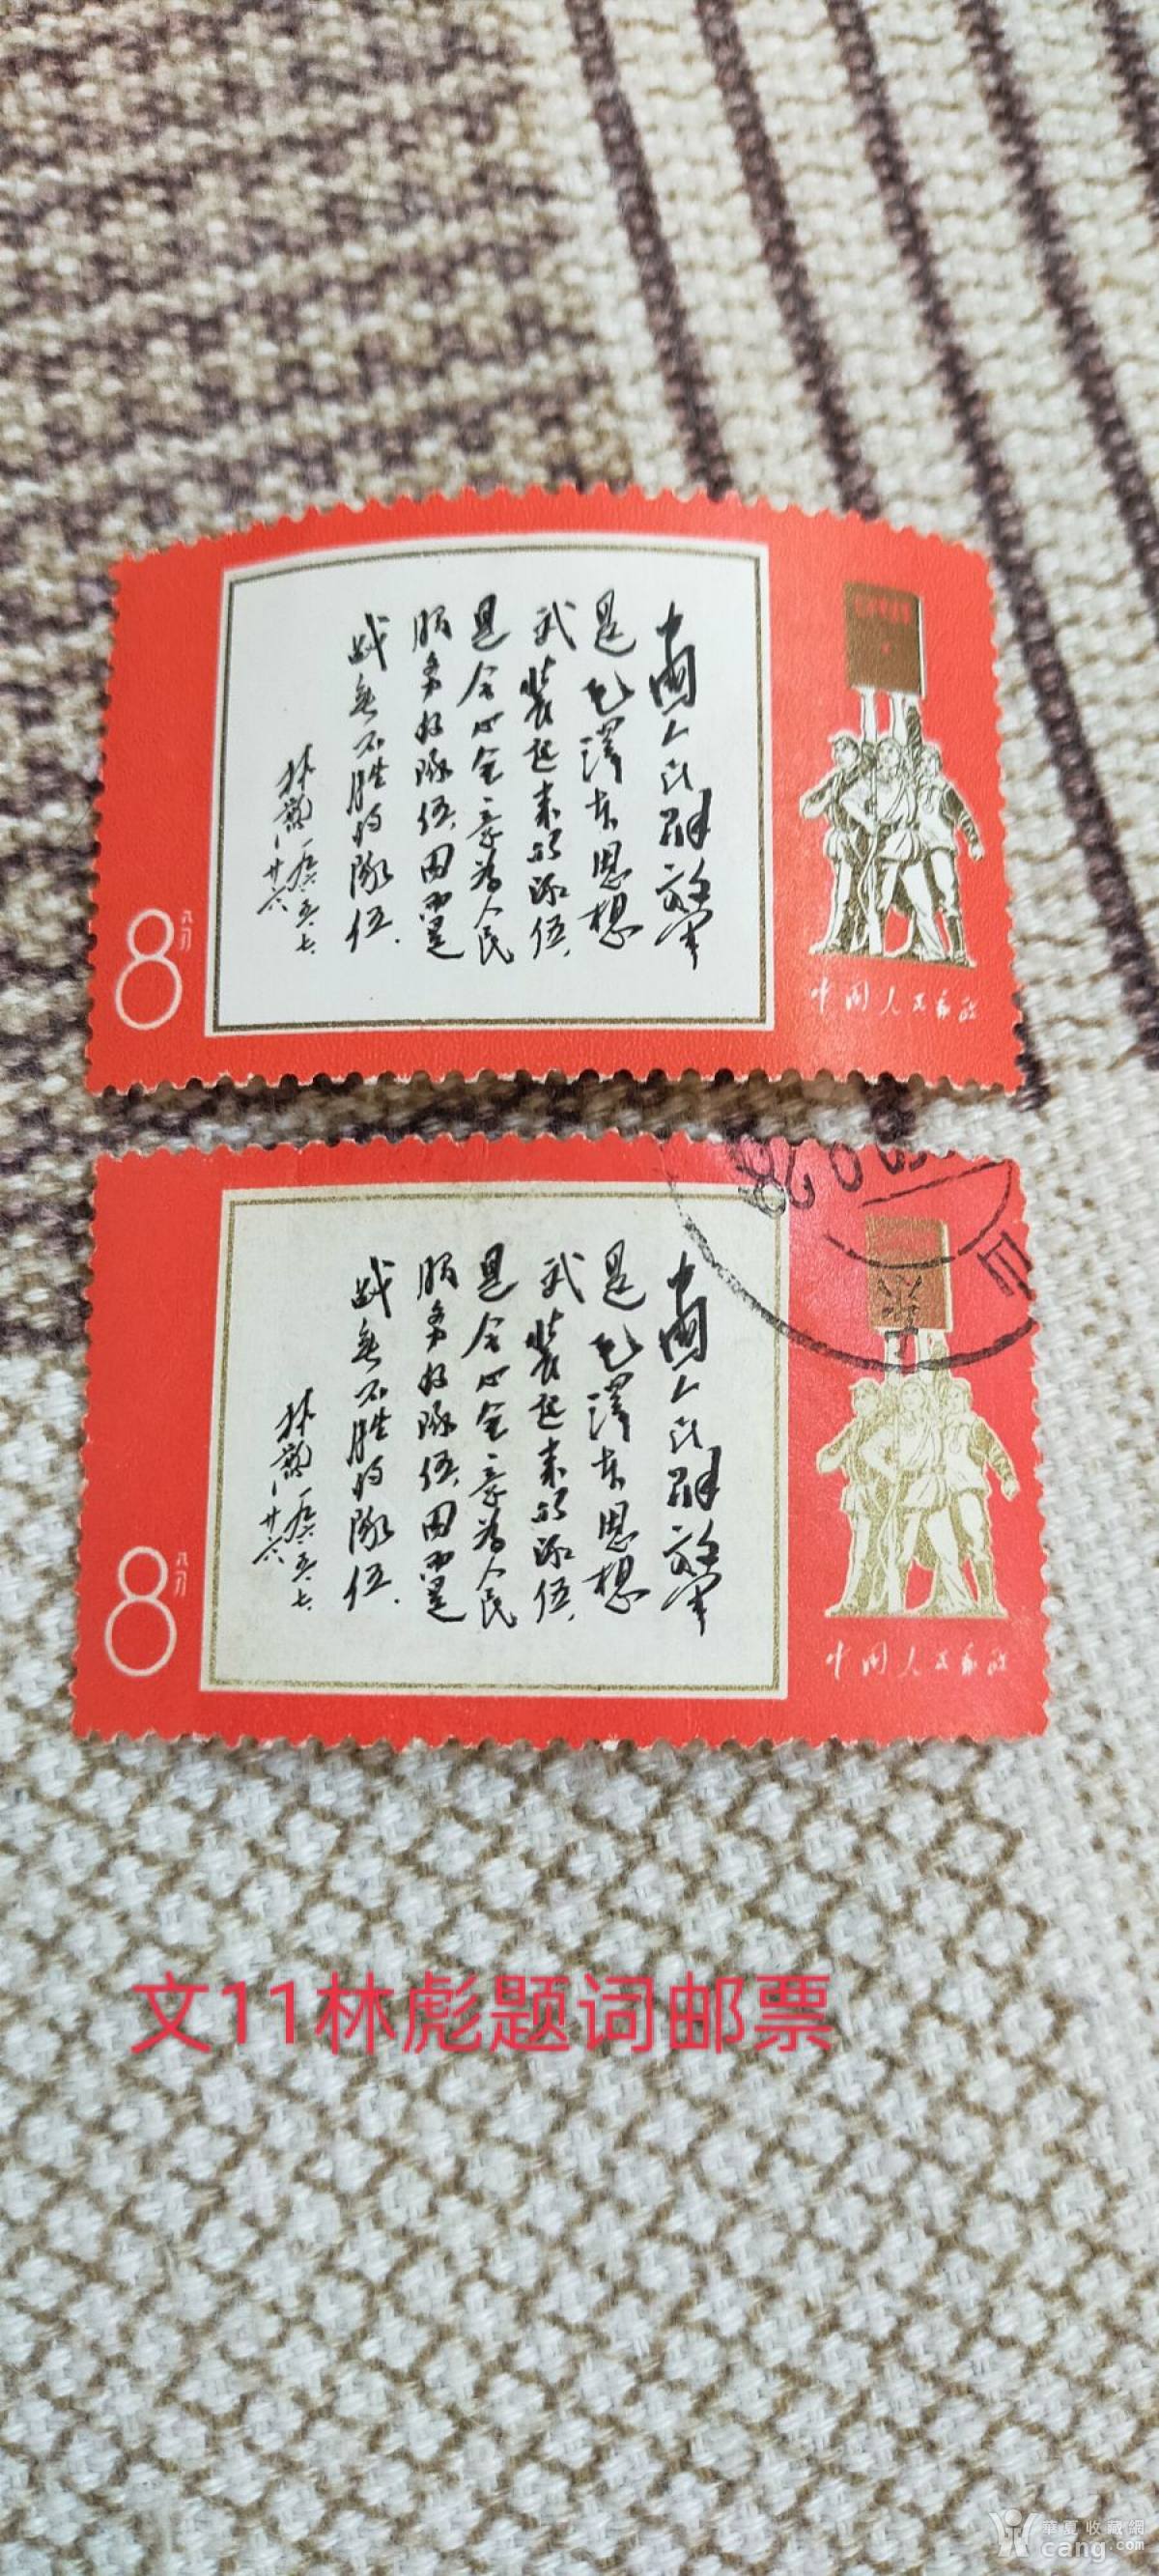 中国人民解放军
是毛泽东思想
武装起来的队伍,
是全心全意为人民
服务的队伍,因而是
战无不胜的队伍.
林彪
一九六五.七.
廿六
8
八分
中国人民邮政
中国人民解放军
是毛泽东思想
武装起来的队伍,
是全心全意为人民
服务的队伍,因而是
战无不胜的队伍.
林彪
一九六五.七.
廿六
8
八分
中国人民邮政
文11林彪题词邮票
華夏收藏網
cang.com